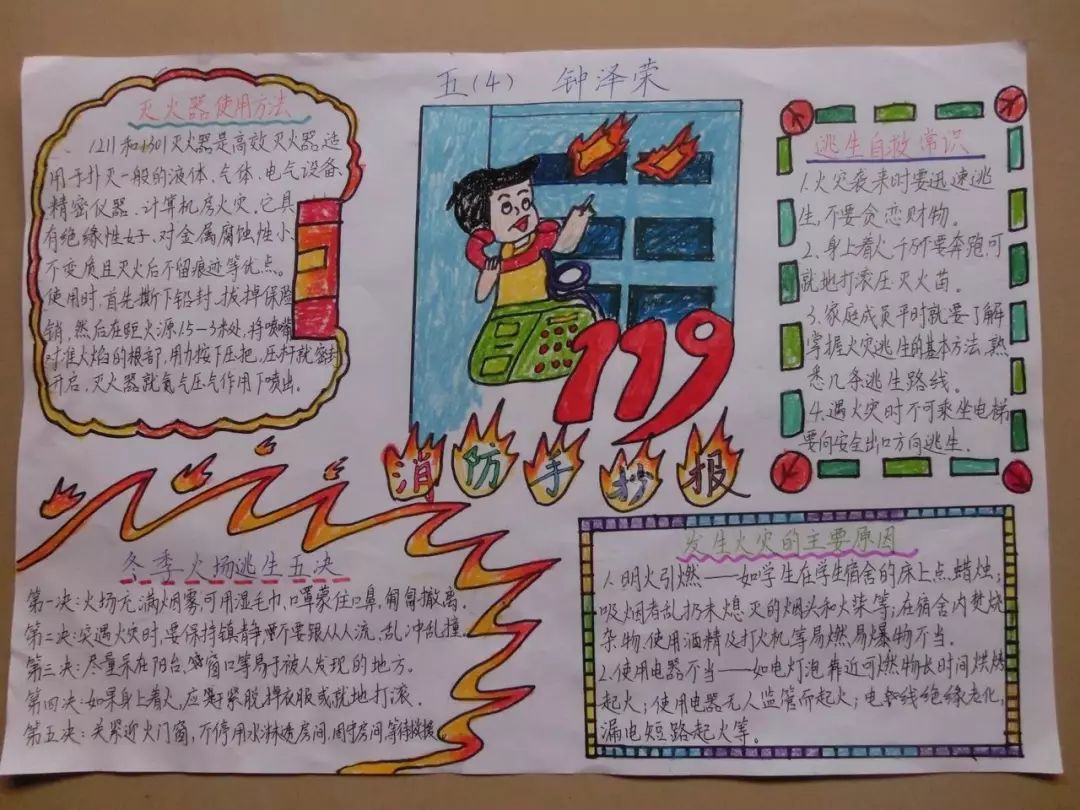 五(4) 钟泽荣
灭火器使用方法
1211和1301灭火器是高效灭火器,适
用于扑灭一般的液体、气体、电气设备、
精密仪器、计算机房火灾。它具
有绝缘性好、对金属腐蚀性小、
不变质且灭火后不留痕迹等优点。
使用时,首先撕下铅封,拔掉保险
销,然后在距火源1.5-3米处,将喷嘴
对准火焰的根部,用力按下压把,压杆就密封
开启,灭火器就氮气压气作用下喷出。
119
消防手抄报
逃生自救常识
1.火灾袭来时要迅速逃
生,不要贪恋财物。
2.身上着火千万不要奔跑,可
就地打滚压灭火苗。
3.家庭成员平时就要了解
掌握火灾逃生的基本方法,熟
悉几条逃生路线。
4.遇火灾时不可乘坐电梯
要向安全出口方向逃生。
冬季火场逃生五决
第一决:火场充满烟雾,可用湿毛巾,口罩蒙住口鼻,匍匐撤离。
第二决:突遇火灾时,要保持镇静,不要跟从人流,乱冲乱撞。
第三决:尽量呆在阳台,窗口等易于被人发现的地方。
第四决:如果身上着火,应赶紧脱掉衣服或就地打滚。
第五决:关紧近火门窗,不停用水淋透房间,固守房间,等待救援。
发生火灾的主要原因
1.明火引燃——如学生在学生宿舍的床上点蜡烛;
吸烟者乱扔未熄灭的烟头和火柴等;在宿舍内焚烧
杂物、使用酒精及打火机等易燃易爆物不当。
2.使用电器不当——如电灯泡靠近可燃物长时间烘烤
起火;使用电器无人监管而起火;电线绝缘老化,
漏电短路起火等。